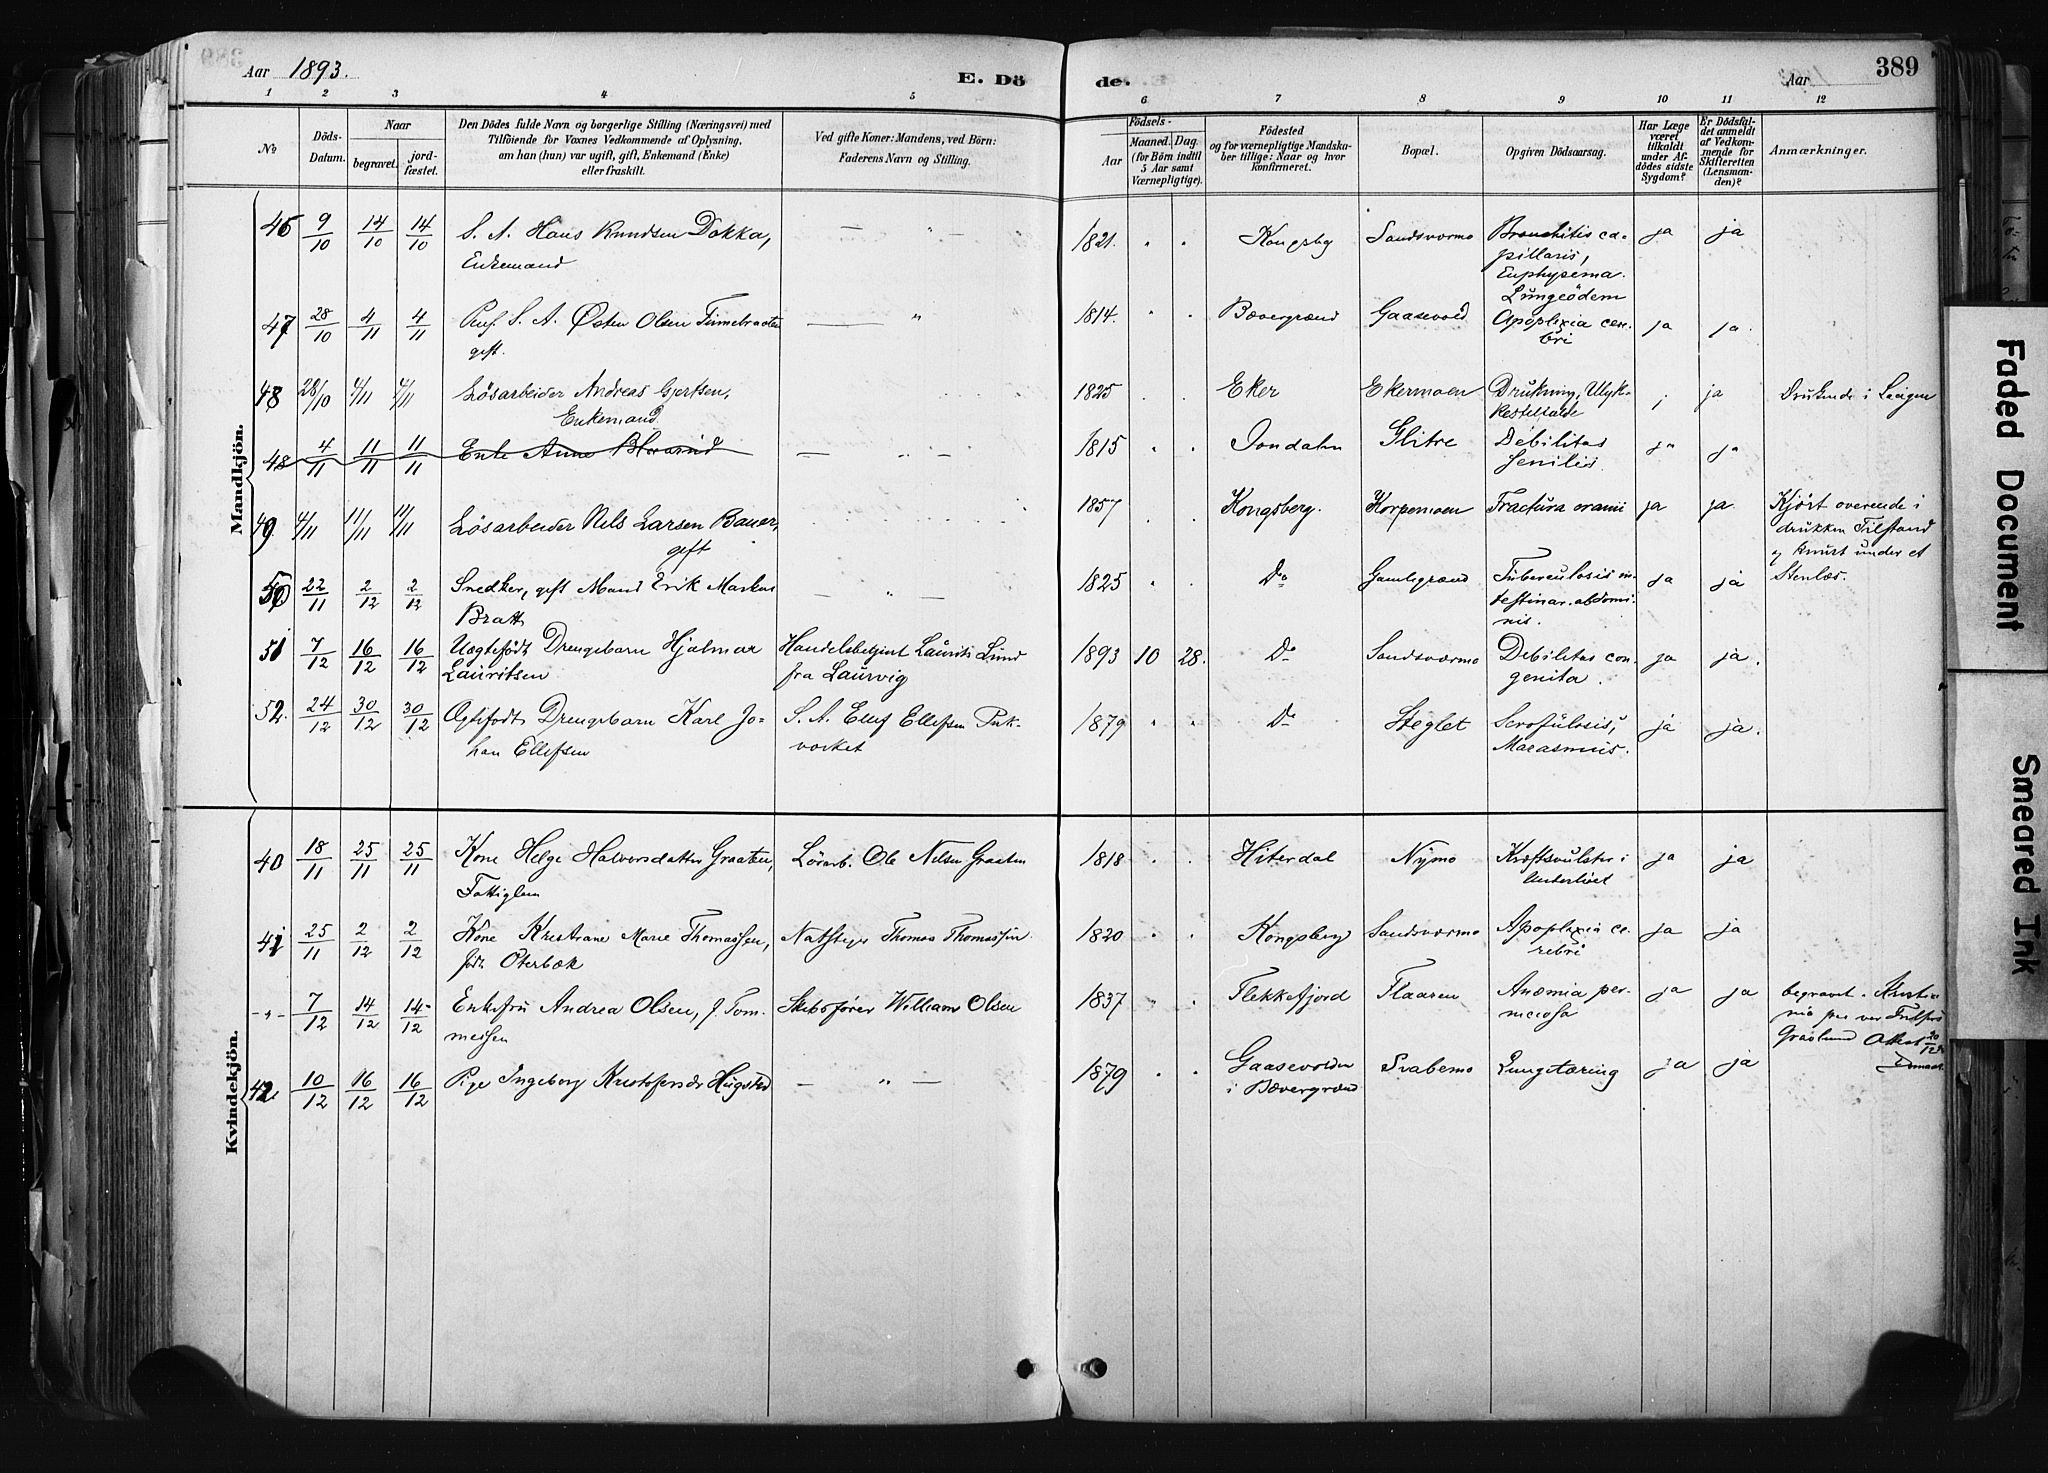 Aar 1893.
E. Dö
de.
Aar
389
1 2 3 4 5 6 7 8 9 10 11 12
No
Döds-Datum.
Naar
begravet.
jord-fæstet.
Den Dödes fulde Navn og borgerlige Stilling (Næringsvei) med
Tilföiende for Voxnes Vedkommende af Oplysning,
om han (hun) var ugift, gift, Enkemand (Enke)
eller fraskilt.
Ved gifte Koner: Mandens, ved Börn:
Faderens Navn og Stilling.
Födsels-
Aar
Maaned. Dag.
(for Börn indtil
5 Aar samt
Værnepligtige).
Födested
og for værnepligtige Mandska-
ber tillige: Naar og hvor
konfirmeret.
Bopæl.
Opgiven Dödsaarsag.
Har Læge
været
tilkaldt
under Af-
dödes sidste
Sygdom?
Er Dödsfal-
det anmeldt
af Vedkom-
mende for
Skifteretten
(Lensman-
den)?
Anmærkninger.
Mandkjön.
46 9/10 14/10 14/10 S. A. Hans Knudsen Dokka, — " — 1821. " " Kongsbg Sandsværmo Bronchitis ca- ja ja
Enkemand
pillaris,
Emphysema.
Lungeödem
47 28/10 4/11 4/11 S. A. Østen Olsen — " 1814. " " Bævergrænd Gaasevold Apoplexia cere- ja ja.
gift.
bri
48 28/10 4/11 4/11 Løsarbeider Andreas Gjertsen, 1825 Eker Ekermoen Drukning, Ulyk- j ja Druknede i Laagen
Enkemand
kestilfælde
48 4/11 11/11 11/11 Enke Anne — " — 1815 " " Jondalen Glitre Debilitas ja ja
senilis.
49. 4/11 11/11 11/11 Løsarbeider Nils Larsen Bauer, 1857 " " Kongsberg. Korpemoen Fractura cranii ja ja. Kjørt overende i
gift
drukken Tilstand
og knust under et
Stenlæs.
50 22/11 2/12 2/12 Snedker, gift Mand Erik Markus — " — 1825 " " Do Gamlegrænd Tuberculosis in- ja ja
Bratt
testinar. abdomi-
nis.
51 7/12 16/12 16/12 Uægtefødt Drengebarn Hjalmar Handelsbetjent Laurits Lund 1893 10 28. Do Sandsværmo Debilitas con- ja ja.
Lauritsen fra Laurvig
genita.
52. 24/12 30/12 30/12 Ægtefødt Drengebarn Karl Jo- S. A. Ellef Ellefsen Puk- 1879 " " Do Steglet Scrofulosis, ja ja.
han Ellefsen værket
Marasmus.
Kvindekjön.
40 18/11 25/11 25/11 Kone Helge Halvorsdatter Graaten, Løsarb. Ole Nilsen Graaten 1818 " " Hiterdal Nymo Kræftsvulster i ja ja
Fattiglem
Underlivet
41 25/11 2/12 2/12 Kone Kristiane Marie Thomassen, Thomas Thomassen 1820 " " Kongsberg Sandsværmo Apoplexia ce- ja ja
født Oterbæk
rebri
-"- 7/12 14/12 14/12 Enkefru Andrea Olsen, f. Tom- Skibsfører William Olsen 1837 " " Flekkefjord Flaaren Anæmia per- ja ja begravet i Kristia
messen
niciosa
42 10/12 16/12 16/12 Pige Ingeborg Kristofersdr Hugsted — " — 1879 " " Gaasevolden Svabemo Lungetæring ja ja
i Bævergrænd
Faded Document
Smeared Ink